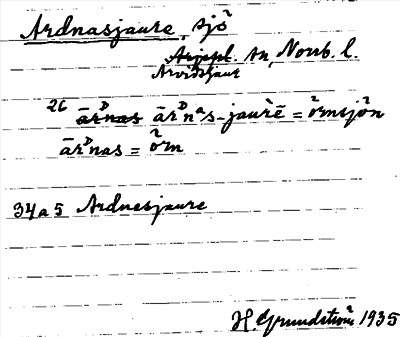 Ardnasjaure, sjö
Arjepl. sn, Norrb. l.
Arvidsjaur
26 ārᴰnas ārᴰnᵃs-jaùrē = örnsjön
ārᴰnas = örn
34a5 Ardnesjaure
H. Grundström 1935